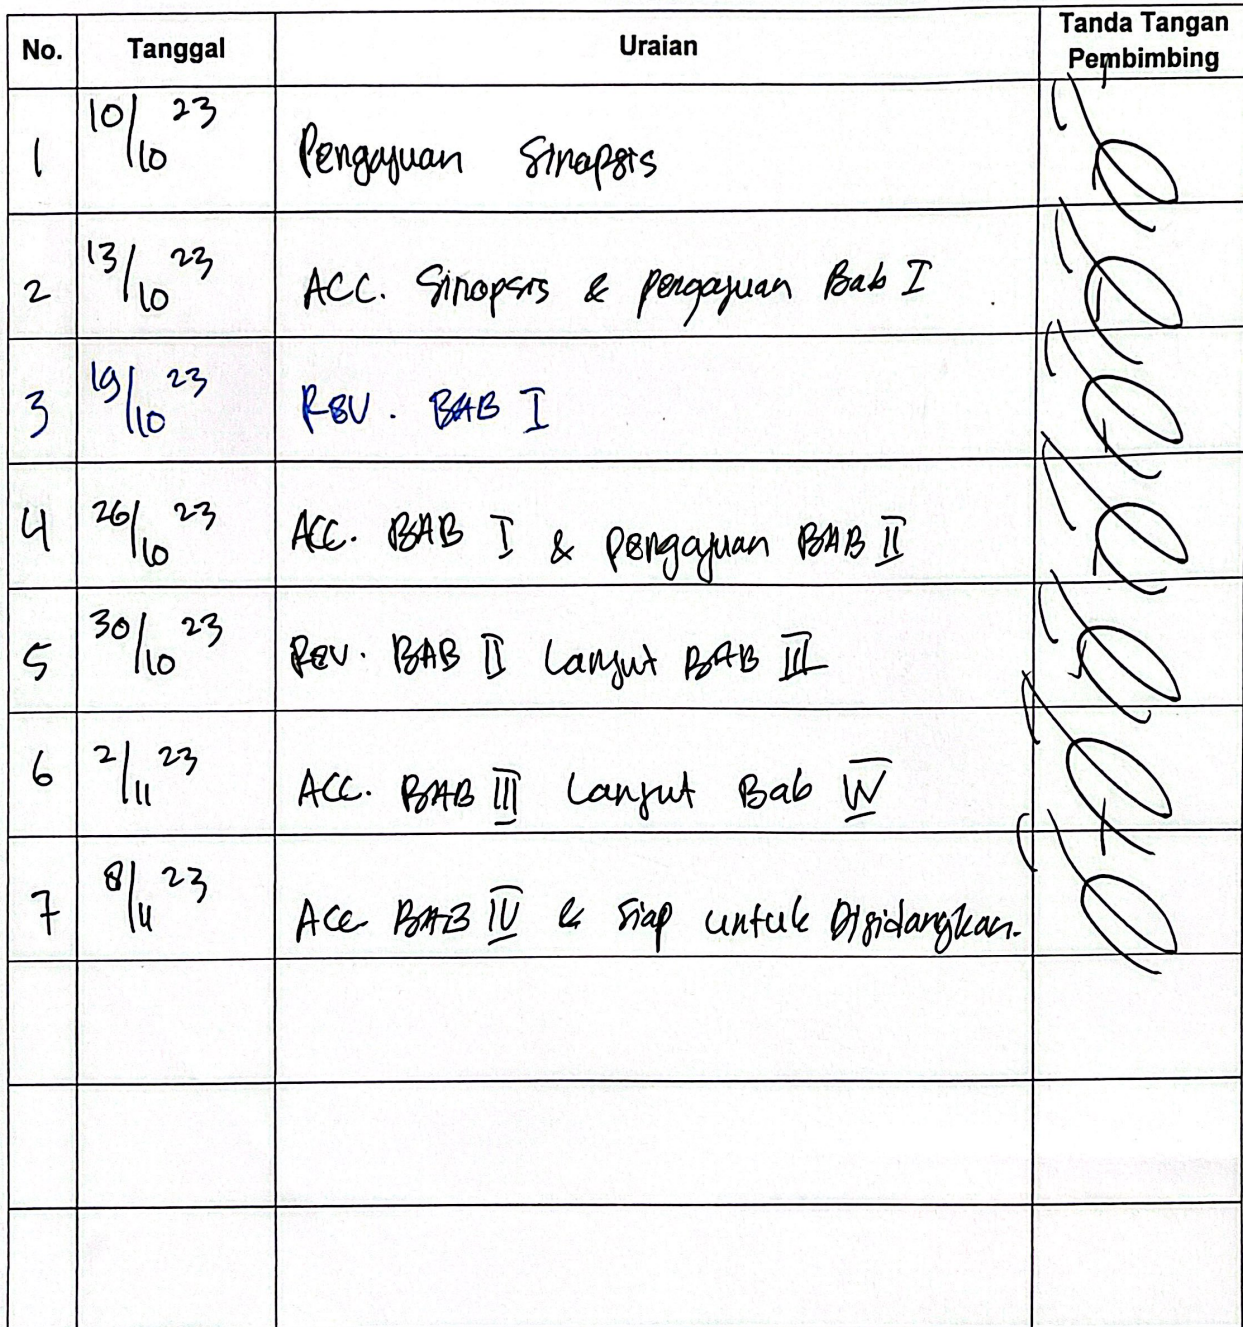 No. Tanggal Uraian Tanda Tangan Pembimbing
1 10/10 23 Pengajuan Sinopsis
2 13/10 23 ACC. Sinopsis & pengajuan Bab I
3 19/10 23 Rev. BAB I
4 26/10 23 Acc. BAB I & pengajuan BAB II
5 30/10 23 Rev. BAB II Lanjut BAB III
6 2/11 23 ACC. BAB III Lanjut Bab IV
7 8/11 23 Acc. BAB IV & siap untuk Disidangkan.